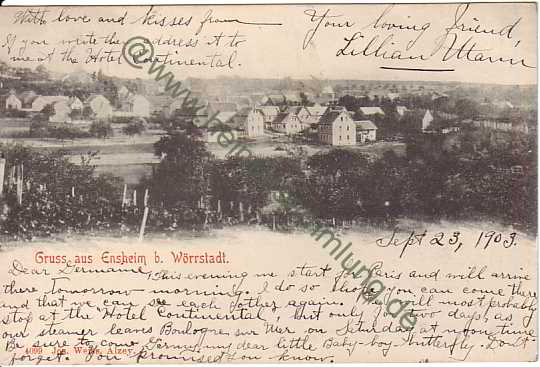 With love and kisses from
Your loving friend,
Lillian Utarm
If you write the address it to
me at the Hotel Continental.
©www.heimatsammlung.de
Gruss aus Ensheim b. Wörrstadt.
Sept 23, 1903.
Dear Germaine, This evening me start for Paris and will arrive
there tomorrow morning. I do so hope you can come there
and that we can see each other again. We will most probably
stop at the "Hotel Continental", but only for two days, as
our steamer leaves Boulogne sur Mer on Saturday at noon time.
Be sure to come my dear little Baby-boy-Butterfly. Don't
forget. You promised you know.
4099 Jos. Weiss, Alzey.